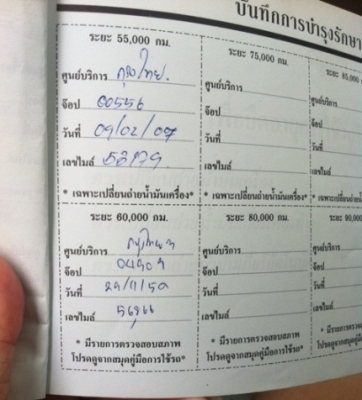 บันทึกการบำรุงรักษา
ระยะ 55,000 กม.
ศูนย์บริการ กรุงไทย.
จ๊อป 00556
วันที่ 09/02/07
เลขไมล์ 53179
* เฉพาะเปลี่ยนถ่ายน้ำมันเครื่อง*
ระยะ 75,000 กม.
ศูนย์บริการ
จ๊อป
วันที่
เลขไมล์
* เฉพาะเปลี่ยนถ่ายน้ำมันเครื่อง*
ศูนย์บริการ
จ๊อป
วันที่
เลขไมล์
* เฉพาะเปลี่ยน
ระยะ 60,000 กม.
ศูนย์บริการ
จ๊อป
วันที่ 29/11/50
เลขไมล์
* มีรายการตรวจสอบสภาพ
โปรดดูจากสมุดคู่มือการใช้รถ*
ระยะ 80,000 กม.
ศูนย์บริการ
จ๊อป
วันที่
เลขไมล์
* มีรายการตรวจสอบสภาพ
โปรดดูจากสมุดคู่มือการใช้รถ*
ศูนย์บริการ
จ๊อป
วันที่
เลขไมล์
* มีรายการ
โปรดดูจากส